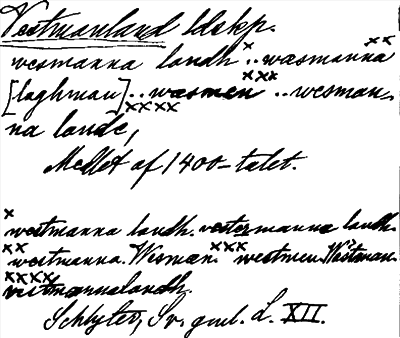 Vestmanland ldskp.
wesmanna landh × .. wæsmanna ××
[laghman] .. wæsmen ××× .. wesman-
na lande, ××××
Medlet af 1400-talet.
× westmanna landh. vestermanna landh.
×× westmanna. Wesman. ××× westmen. Westman.
×××× vestmannalandh.
Schlyter, Sv. gml. L. XII.